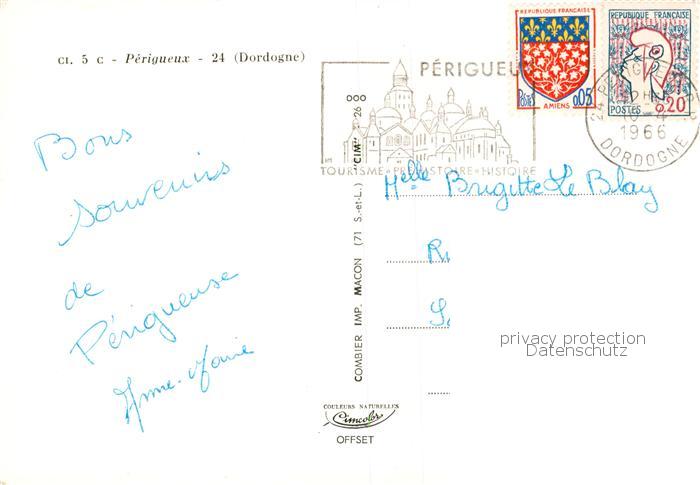 CI. 5 C - Périgueux - 24 (Dordogne)
Bons
souvenirs
de
Périgueuse
Anne-Marie
PÉRIGUEUX
TOURISME-PRÉHISTOIRE-HISTOIRE
RÉPUBLIQUE FRANÇAISE
POSTES
0,05
AMIENS
REPUBLIQUE FRANÇAISE
POSTES
0,20
1966
DORDOGNE
COMBIER IMP. MACON (71 S.-et-L.) "CIM" 26 000
Melle Brigitte Le Blay
privacy protection
Datenschutz
COULEURS NATURELLES
Cimcolor
OFFSET